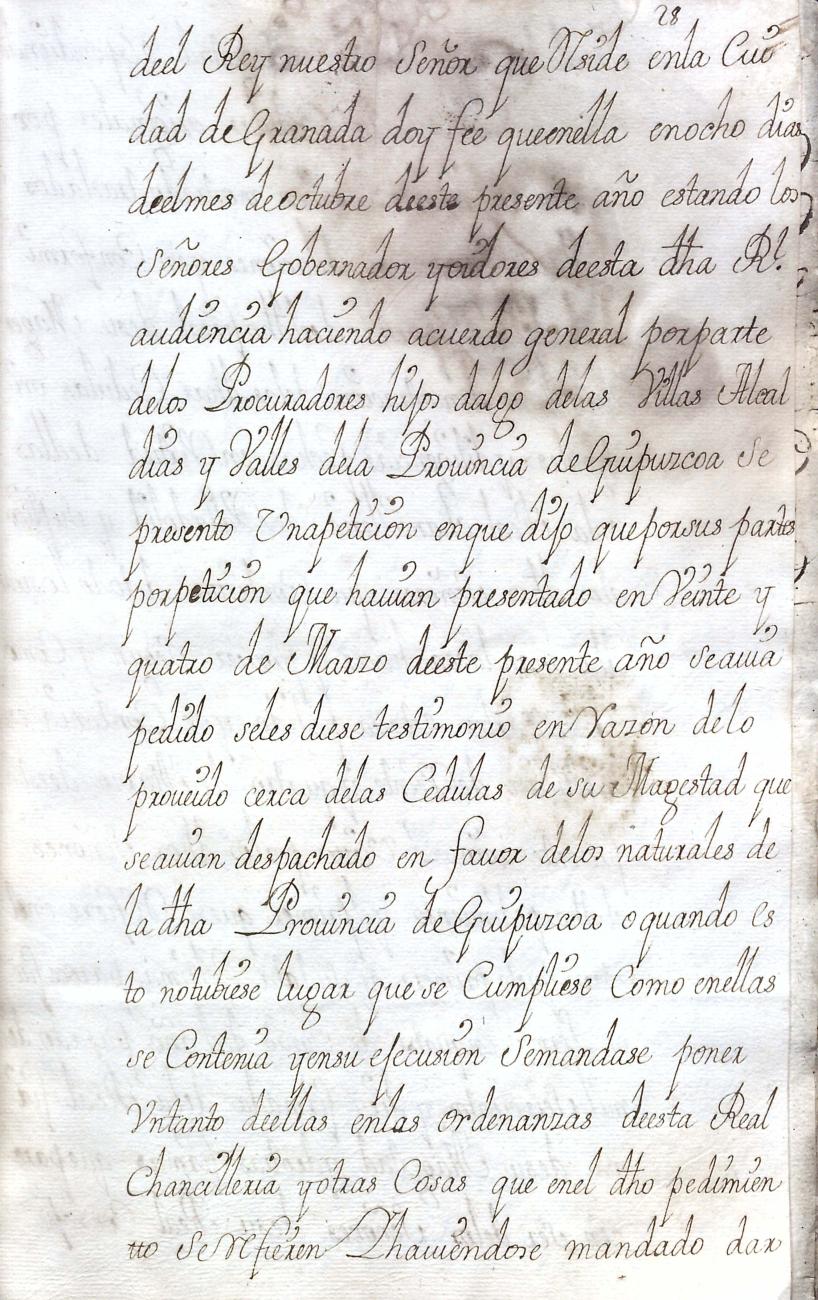 28
deel Rey nuestro Señor que Rside enla Ciu
dad de Granada doy fee queenella enocho dias
deelmes deoctubre deeste presente año estando los
Señores Gobernador yoidores deesta dha Rl.
audiencia haciendo acuerdo general porparte
delos Procuradores hijos dalgo delas Villas Alcal
dias y Valles dela Prouincia deGuipuzcoa Se
presento Vnapeticion enque dijo queporsus partes
porpeticion que hauian presentado en Veinte y
quatro de Marzo deeste presente año seauia
pedido seles diese testimonio en Razon delo
proueido cerca delas Cedulas de su Magestad que
seauian despachado en fauor delos naturales de
la dha Prouincia deGuipuzcoa oquando es
to notubiese lugar que se Cumpliese Como enellas
se Contenia yensu ejecusion Semandase poner
Vntanto deellas enlas ordenanzas deesta Real
Chancilleria yotras Cosas que enel dho pedimien
tto SeRfieren Lhauiendose mandado dar